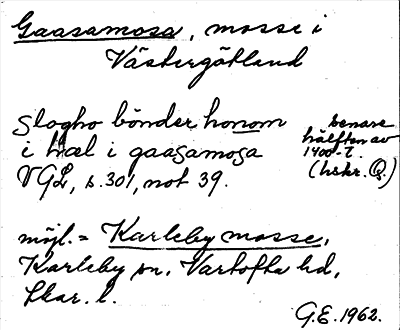 Gaasamosa, mosse i
Västergötland
slogho bönder honom
i hæl i gaasamosa
VGL, s. 301, not 39.
senare
hälften av
1400-t.
(hskr. Q.)
möjl. = Karleby mosse,
Karleby sn, Vartofta hd,
Skar. l.
G.E. 1962.